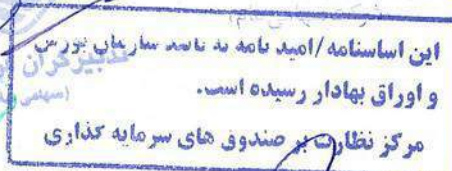 شرکت سهامی عام
این اساسنامه/امید نامه به تائید سازمان بورس
و اوراق بهادار رسیده است.
مرکز نظارت بر صندوق های سرمایه گذاری
تدبیرگران
(سهامی